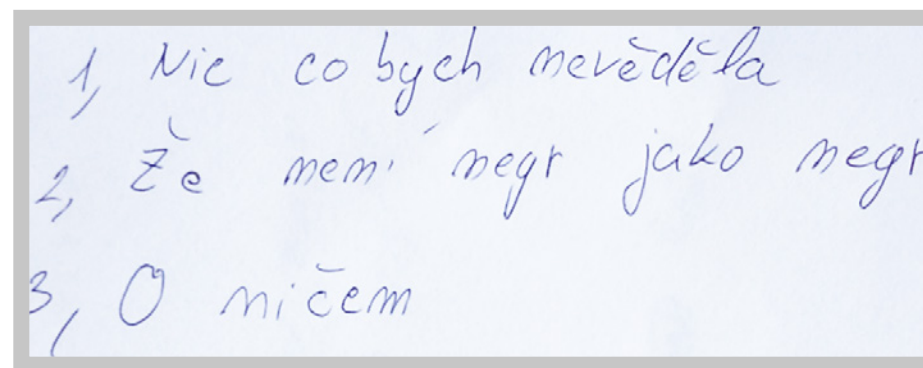 1, Nic co bych nevěděla
2, Že není negr jako negr
3, O ničem